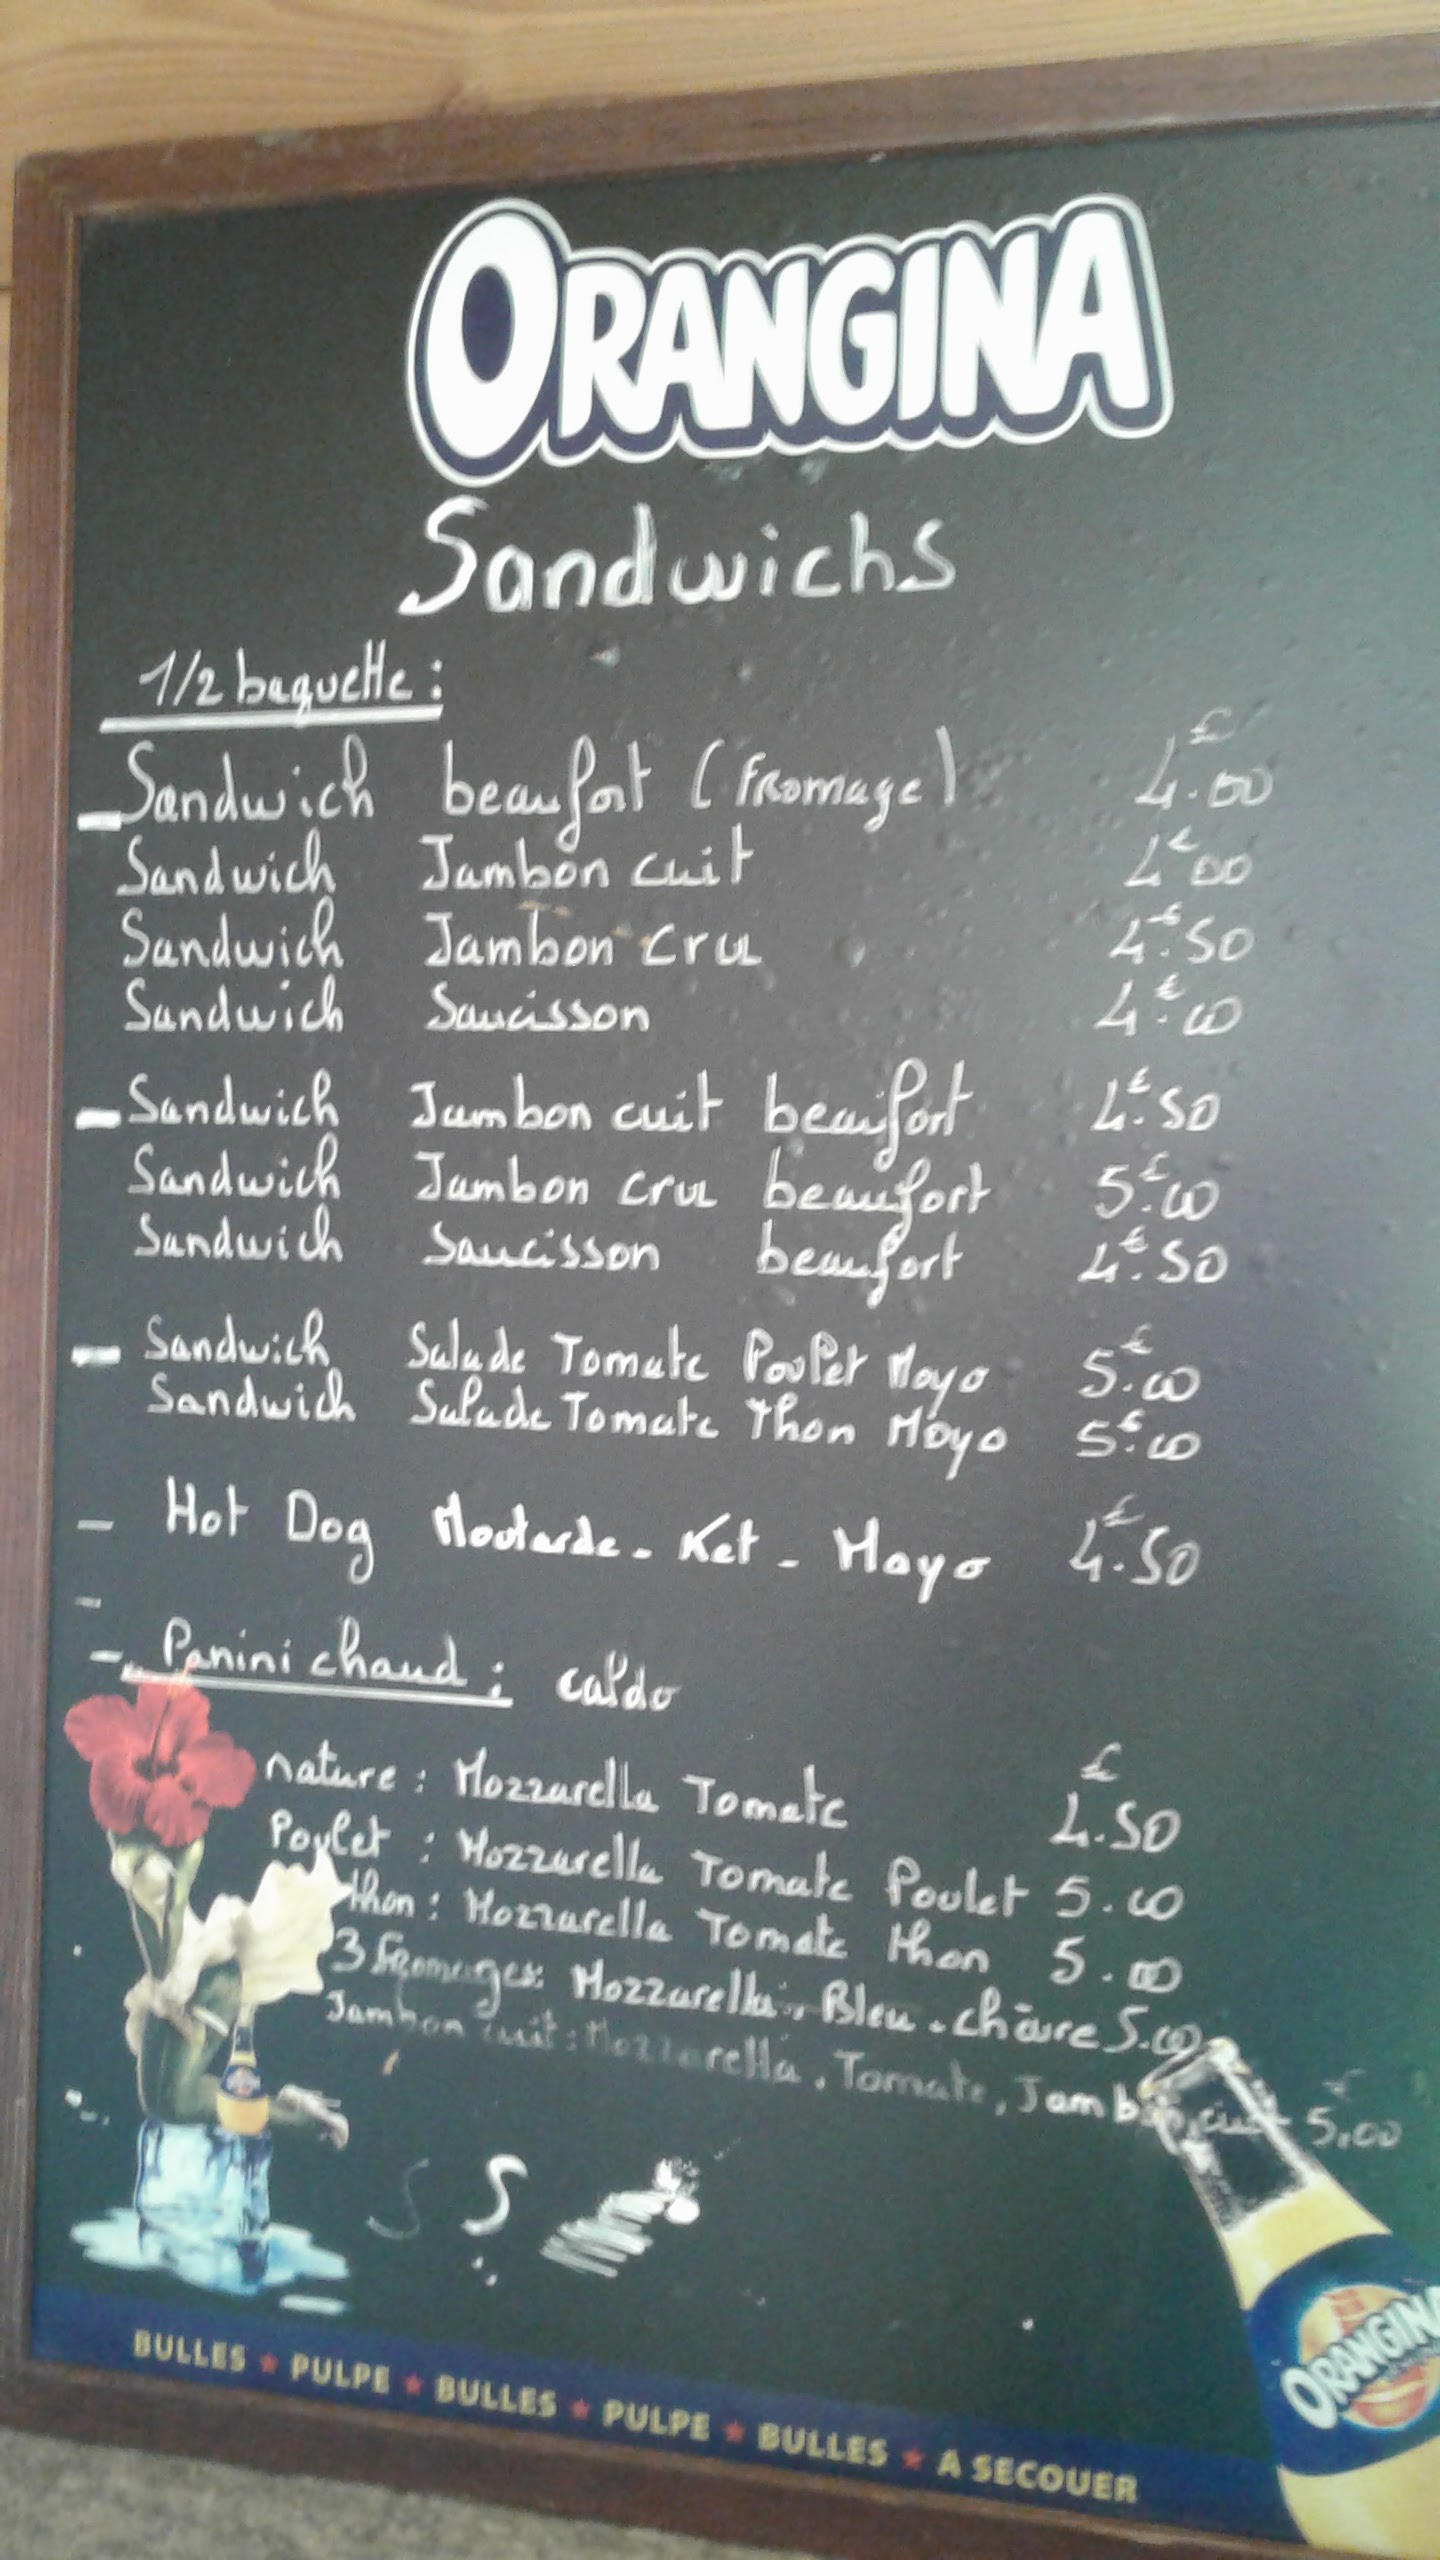 ORANGINA
Sandwichs
1/2 baguette :
Sandwich beaufort (Fromage) 4.00 €
Sandwich Jambon cuit 4€00
Sandwich Jambon cru 4.€50
Sandwich Saucisson 4.€00
Sandwich Jambon cuit beaufort 4.€50
Sandwich Jambon cru beaufort 5.€00
Sandwich Saucisson beaufort 4.€50
Sandwich Salade Tomate Poulet Mayo 5.€00
Sandwich Salade Tomate Thon Mayo 5.€00
- Hot Dog Moutarde - Ket - Mayo 4.€50
-
- Panini chaud : caldo
nature : Mozzarella Tomate € 4.50
Poulet : Mozzarella Tomate Poulet 5.00
thon : Mozzarella Tomate thon 5.00
3 fromages: Mozzarella - Bleu - chèvre 5.00
Jambon cuit : Mozzarella, Tomate, Jambon cuit 5.00 €
S S
BULLES ★ PULPE ★ BULLES ★ PULPE ★ BULLES ★ A SECOUER
ORANGINA